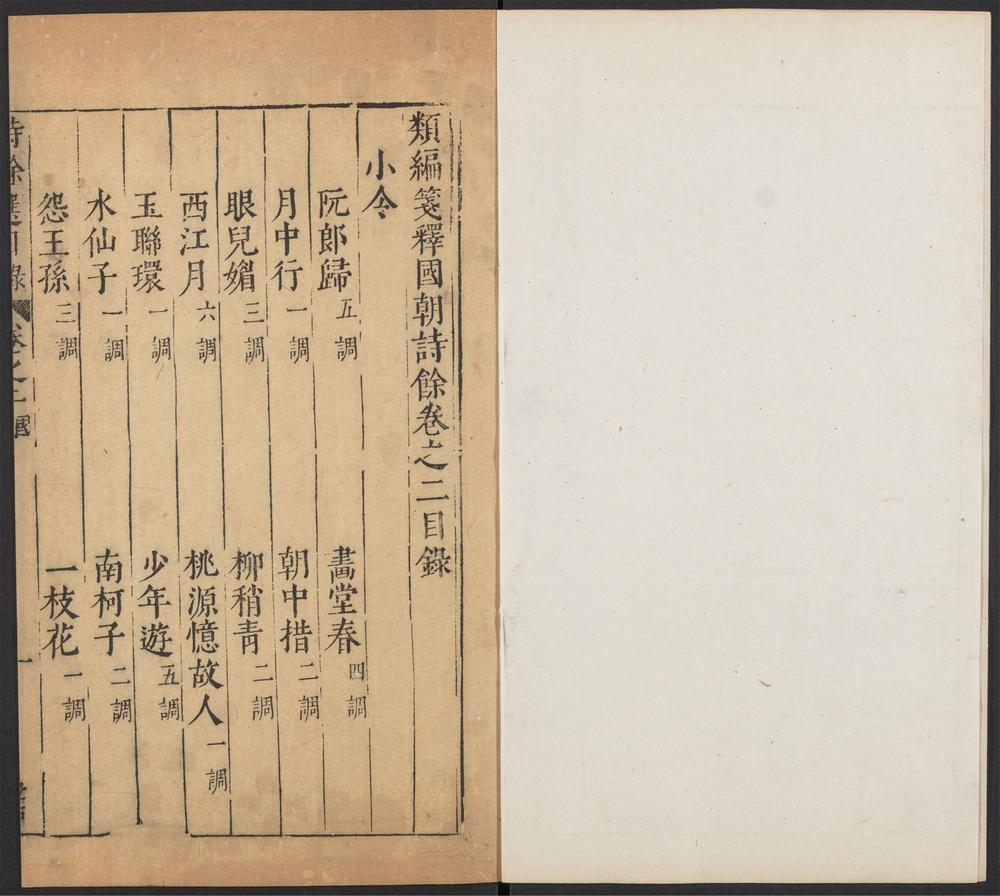 類編箋釋國朝詩餘卷之二目錄
小令
阮郎歸 五調 畫堂春 四調
月中行 一調 朝中措 二調
眼兒媚 三調 柳稍青 二調
西江月 六調 桃源憶故人 一調
玉聯環 一調 少年遊 五調
水仙子 一調 南柯子 二調
怨王孫 三調 一枝花 一調